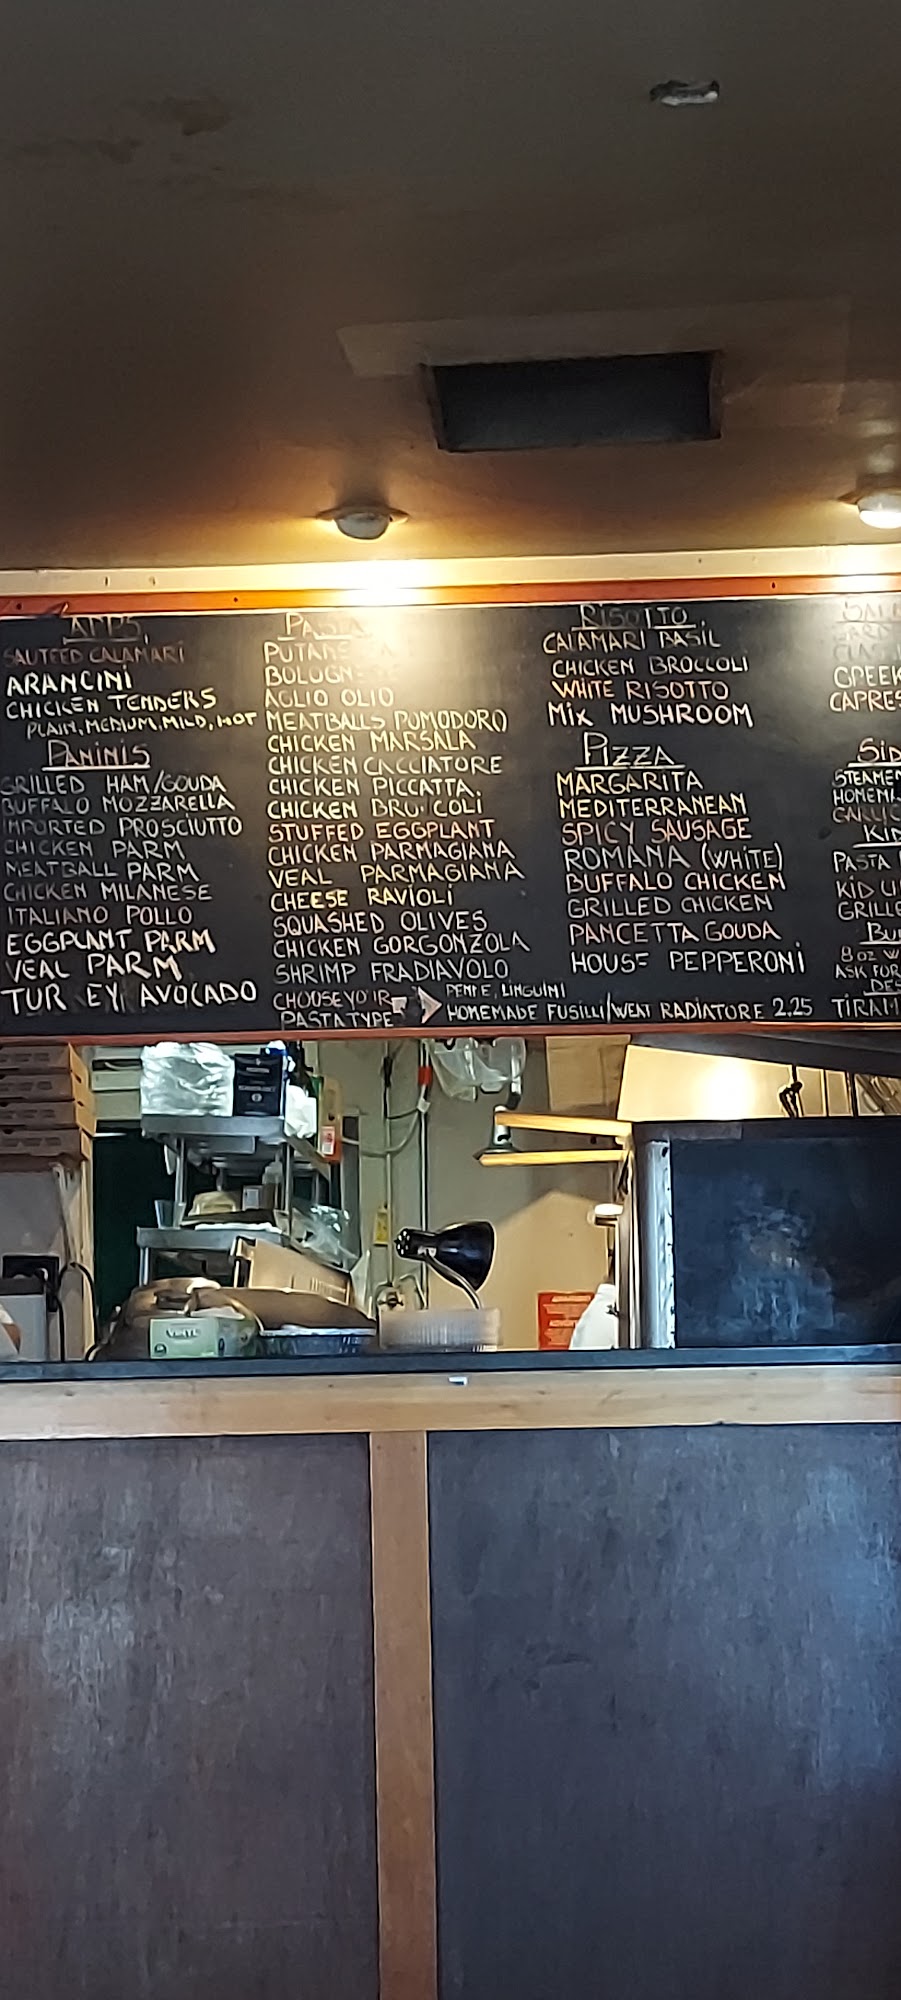 APPS
SAUTEED CALAMARI
ARANCINI
CHICKEN TENDERS
PLAIN, MEDIUM, MILD, HOT
PANINIS
GRILLED HAM/GOUDA
BUFFALO MOZZARELLA
IMPORTED PROSCIUTTO
CHICKEN PARM
MEATBALL PARM
CHICKEN MILANESE
ITALIANO POLLO
EGGPLANT PARM
VEAL PARM
TUR EY AVOCADO
PASTA
AGLIO OLIO
MEATBALLS POMODORO
CHICKEN MARSALA
CHICKEN CACCIATORE
CHICKEN PICCATTA.
CHICKEN
STUFFED EGGPLANT
CHICKEN PARMAGIANA
VEAL PARMAGIANA
CHEESE RAVIOLI
SQUASHED OLIVES
CHICKEN GORGONZOLA
SHRIMP FRADIAVOLO
CHOOSE YO R
PASTA TYPE
PENNE, LINGUINI
HOMEMADE FUSILLI/WEAT RADIATORE 2.25
RISOTTO
CALAMARI BASIL
CHICKEN BROCCOLI
WHITE RISOTTO
MIX MUSHROOM
PIZZA
MARGARITA
MEDITERRANEAN
SPICY SAUSAGE
ROMANA (WHITE)
BUFFALO CHICKEN
GRILLED CHICKEN
PANCETTA GOUDA
HOUSE PEPPERONI
GREEK
CAPRES
SID
STEAME
HOMEMA
GARLIC
KID
PASTA
KID
GRILLE
BU
8 OZ W
ASK FOR
DES
TIRAMI